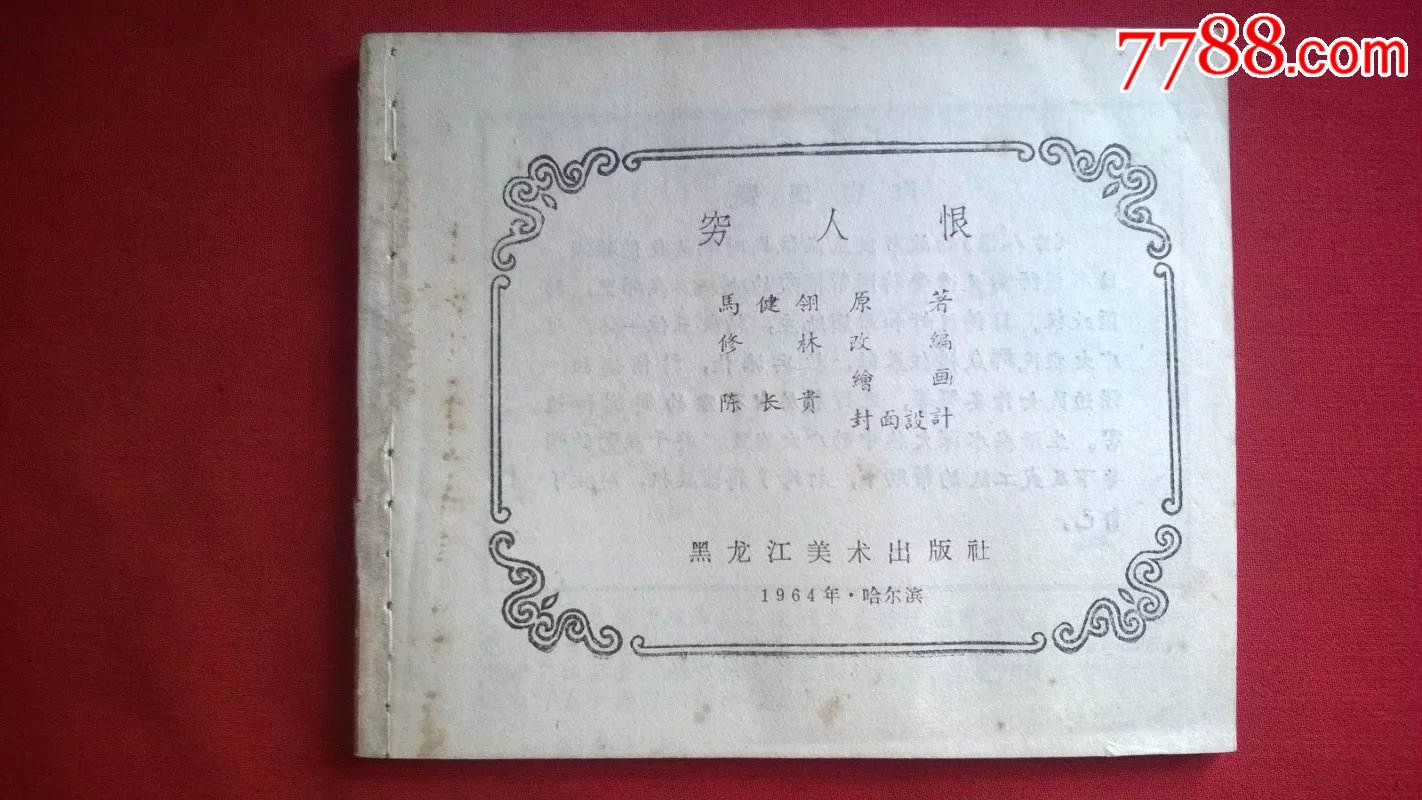 7788.com
穷人恨
馬健翎原著
修林改編
繪画
陈长貴
封面設計
黑龙江美术出版社
1964年·哈尔滨